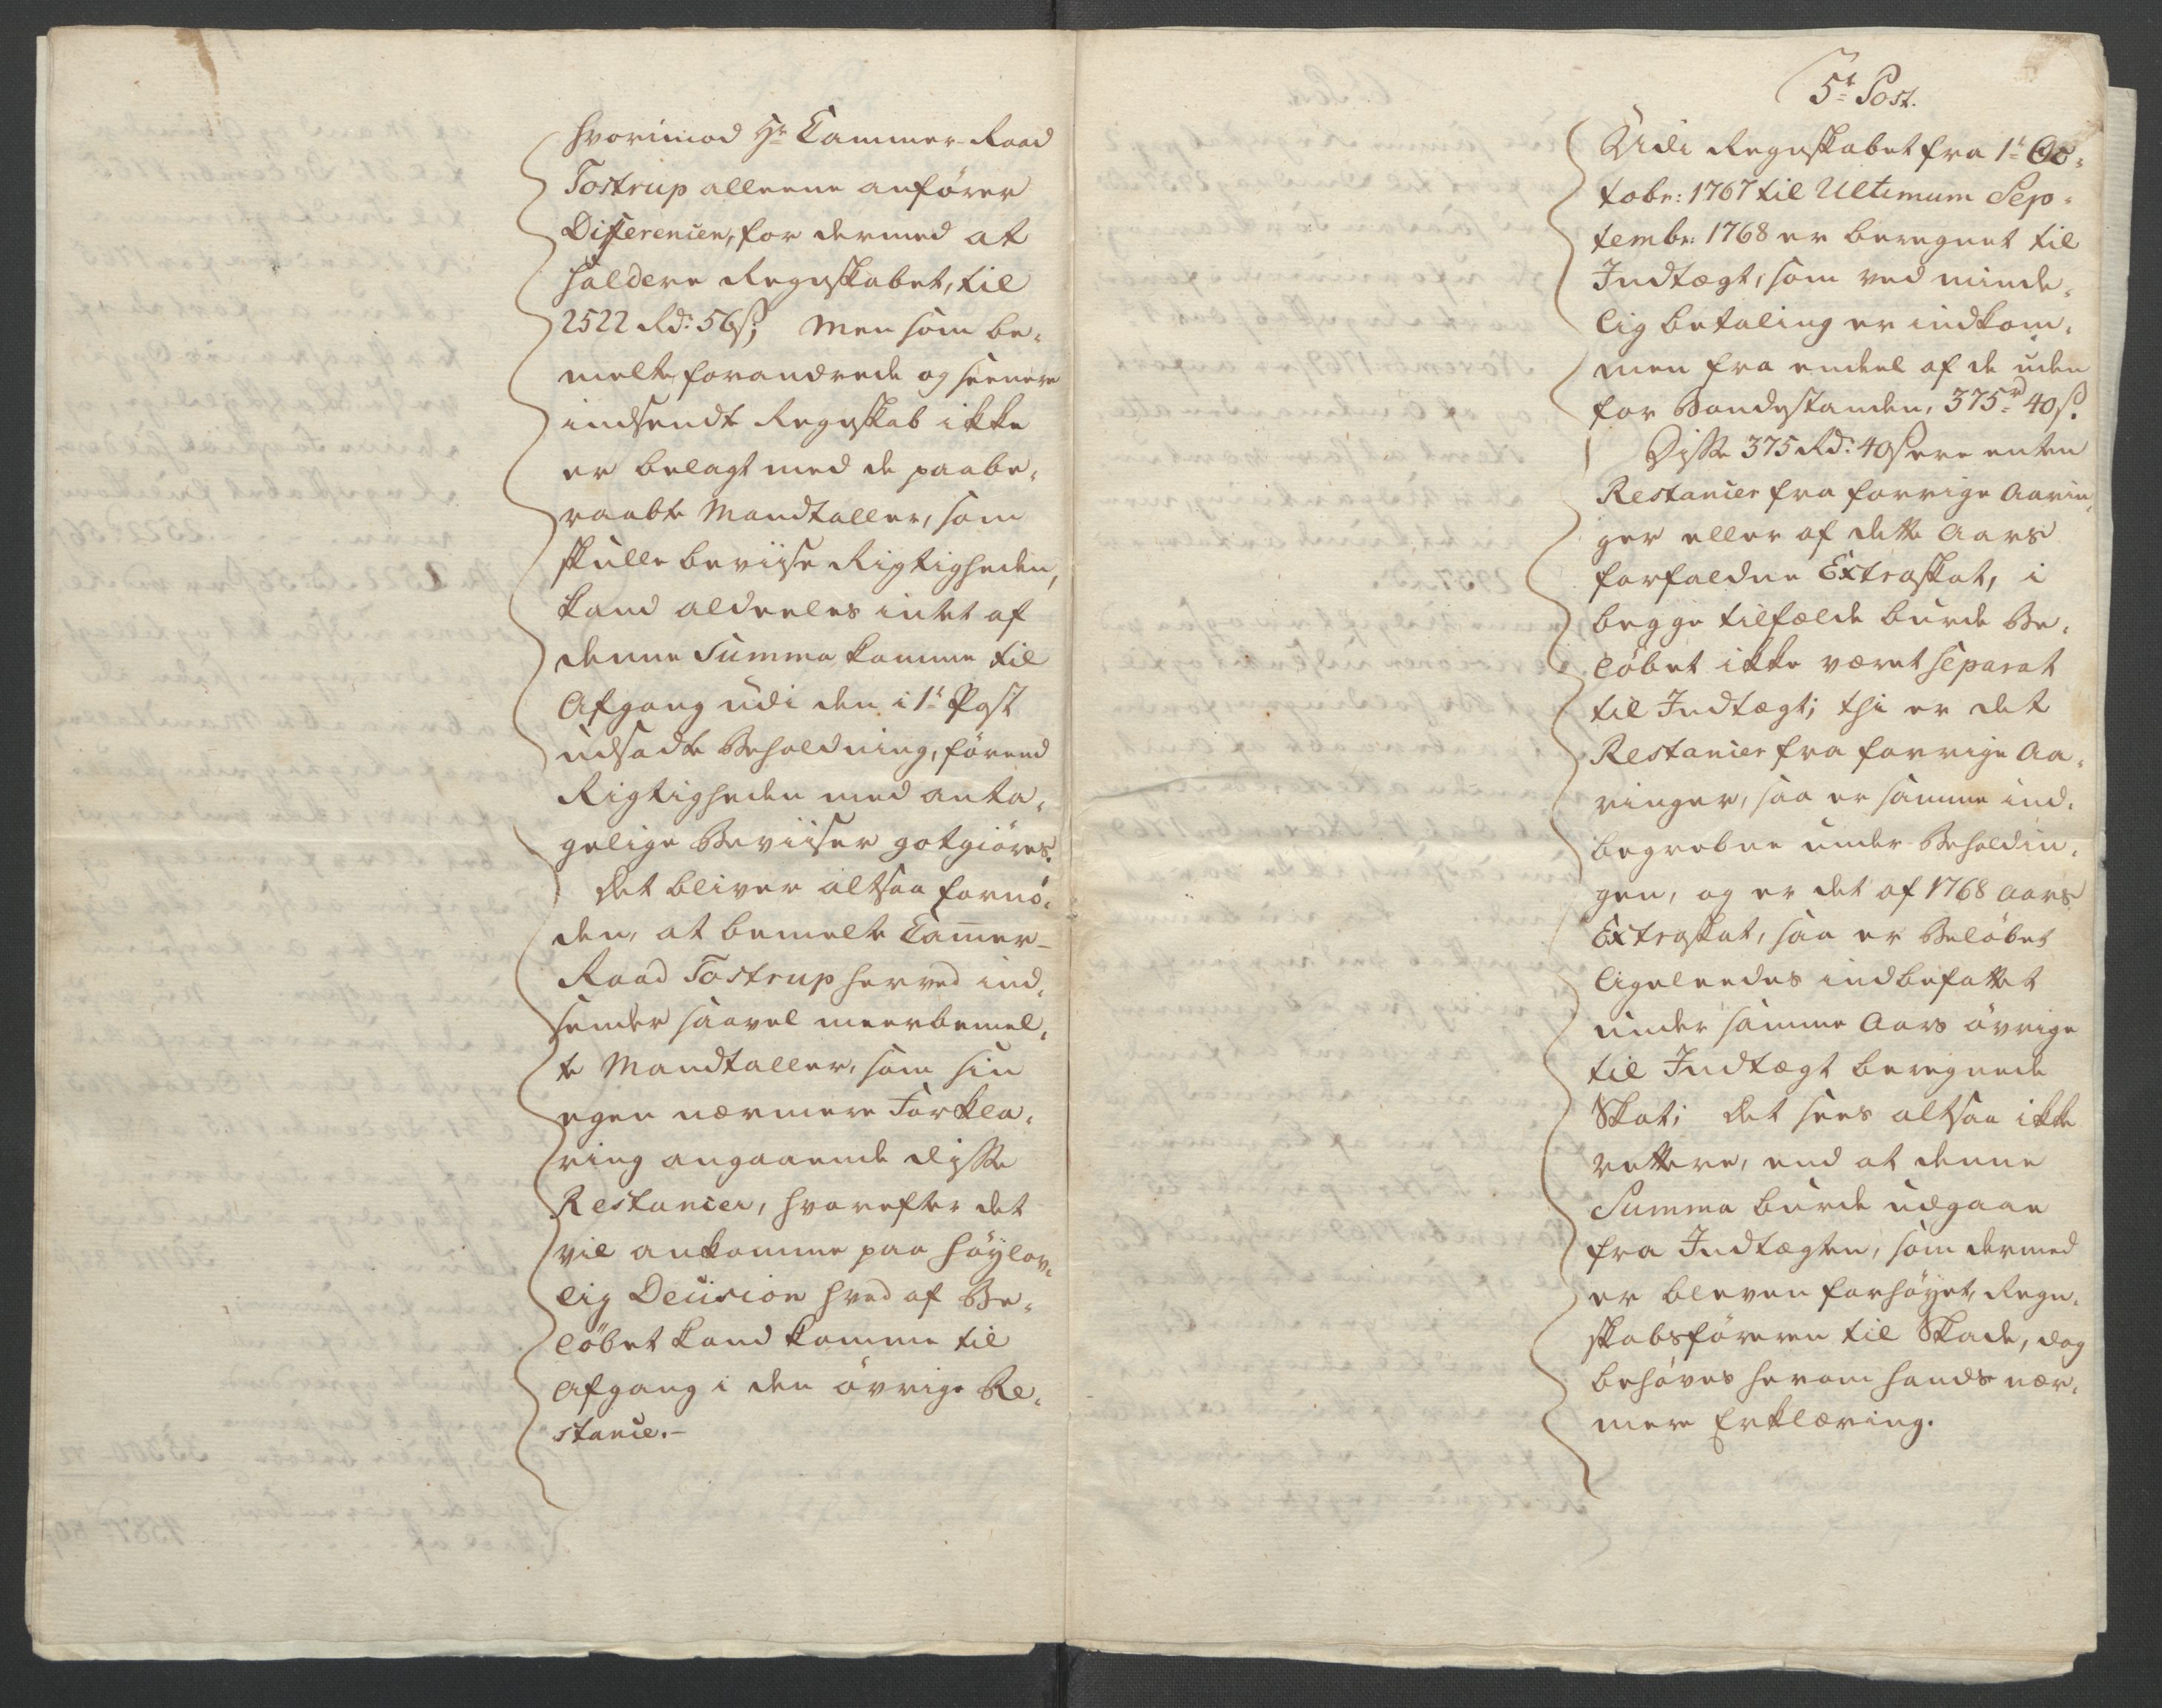 hvorimod Hr. Cammer-Raad
Tostrup alleene anfører
Differencen, for dermed at
saldere Regnskabet, til
2522 Rd: 56 s; Men som be-
melte forandrede og seenere
indsendte Regnskab ikke
er belagt med de paabe-
raabte Mandtaller, som
skulle beviise Rigtigheden,
kand aldeeles intet af
denne Summa komme til
Afgang udi den i 1te Post
udsadte Beholdning, førend
Rigtigheden med anta-
gelige Beviiser gotgiøres.
Det bliver altsaa fornø-
den, at bemelte Cammer-
Raad Tostrup herved ind-
sender saavel meerbemel-
te Mandtaller, som sin
egen nærmere Forkla-
ring angaaende disse
Restancer, hvorefter det
vil ankomme paa Høylov-
lig Decision hvad af Be-
løbet kand komme til
Afgang i den øvrige Re-
stance.-
5te Post.
Udi Regnskabet fra 1te Oc-
tobr: 1767 til Ultimum Sep-
tembr: 1768 er beregnet til
Indtægt, som ved minde-
lig betaling er indkom-
men fra endeel af de uden
for Bondestanden, 375rd 40 s.
Disse 375 Rd: 40 s ere enten
Restancer fra forrige Aarin-
ger eller af dette Aars
forfaldne Extraskat, i
begge tilfælde burde Be-
løbet ikke været separat
til Indtægt; thi er det
Restancer fra forrige Aa-
ringer, saa er samme ind-
begrebne under Beholdin-
gen, og er det af 1768 Aars
Extraskat, saa er Beløbet
ligeleedes indbefattet
under samme Aars øvrige
til Indtægt beregnede
Skat; det sees altsaa ikke
rettere, end at denne
Summa burde udgaae
fra Indtægten, som dermed
er bleven forhøyet, Regn-
skabsføreren til Skade, dog
behøves herom hands nær-
mere Erklæring.